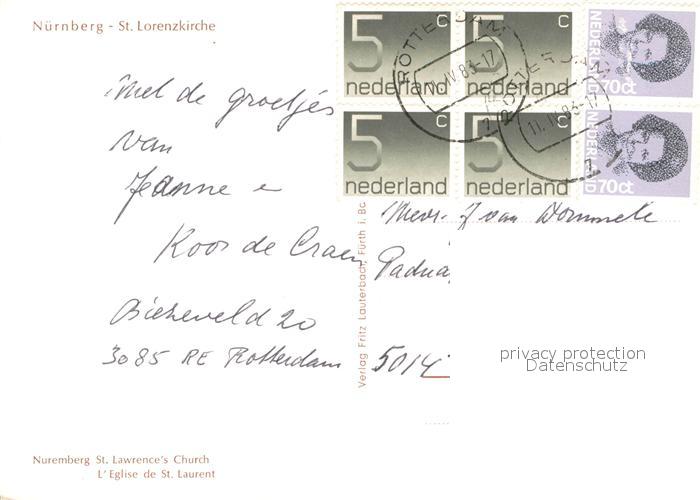 Nürnberg - St. Lorenzkirche
5 c nederland
5 c nederland
NEDERLAND 70ct
5 c nederland
5 c nederland
NEDERLAND 70ct
ROTTERDAM
11.IV.83-17
7
ROTTERDAM
11.IV.83-17
7
Met de groetjes
van
Jeanne e
Koos de Craen
Biezeveld 20
3085 RE Rotterdam
Mevr. J van Dommele
Padua
5014
Verlag Fritz Lauterbach, Fürth i. Bay
privacy protection
Datenschutz
Nuremberg St. Lawrence's Church
L'Eglise de St. Laurent